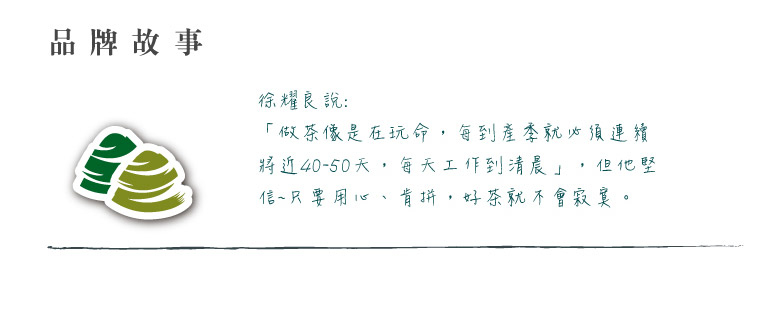 品牌故事
徐耀良說:
「做茶像是在玩命，每到產季就必須連續
將近40-50天，每天工作到清晨」，但他堅
信~只要用心、肯拼，好茶就不會寂寞。